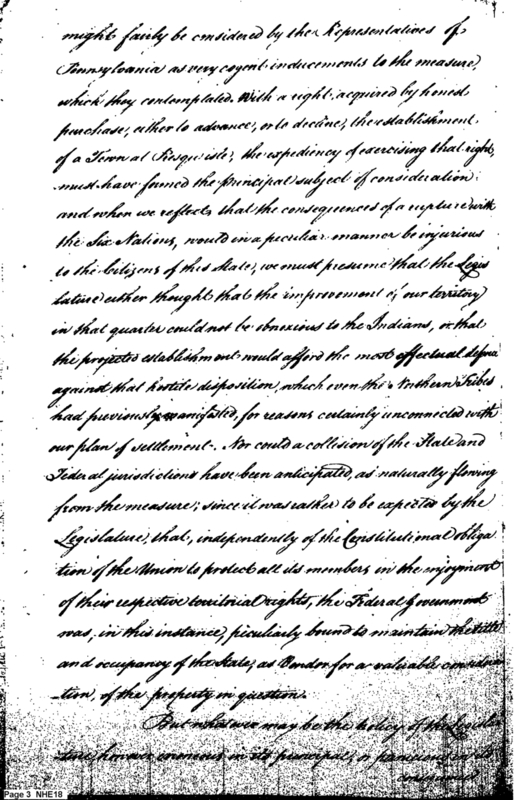 might fairly be considered by the Representatives of
Pennsylvania as very cogent inducements to the measure,
which they contemplated. With a right acquired by honest
purchase, either to advance, or to decline, the establishment
of a Town at Presque isle, the expediency of exercising that right,
must have formed the principal subject of consideration:
and when we reflect, that the consequences of a rupture with
the Six Nations, would in a peculiar manner be injurious
to the Citizens of this State, we must presume that the Legis
lature either thought that the improvement of our territory
in that quarter could not be obnoxious to the Indians, or that
the projected establishment would afford the most effectual defence
against that hostile disposition, which even the Northern Tribes
had previously manifested, for reasons certainly unconnected with
our plan of settlement. Nor could a collision of the State and
Federal jurisdictions have been anticipated, as naturally flowing
from the measure; since it was rather to be expected by the
Legislature, that, independently of the Constitutional obliga
tion of the Union to protect all its members, in the enjoyment
of their respective territorial rights, the Federal Government
was, in this instance, peculiarly bound to maintain the title
and occupancy of the State, as Vendor for a valuable considera
-tion, of the property in question.
But whatever may be the policy of the Legisla
ture however erroneous in its principal, or
Page 3 NHE18